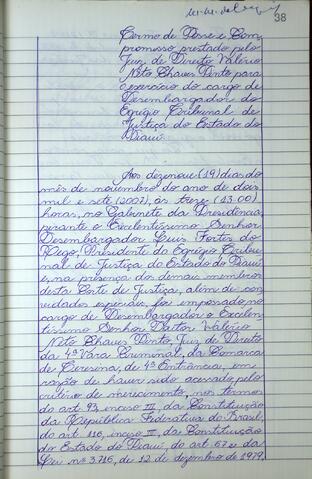 38
Termo de Posse e Com
promosso prestado pelo
Juiz de Direito Valério
Neto Chaves Pinto para
o exercício do cargo de
Desembargador do
Egrégio Tribunal de
Justiça do Estado do
Piauí.
Aos dezenove (19) dias do
mês de novembro do ano de dois
mil e sete (2007), às treze (13:00)
horas, no Gabinete da Presidência,
perante o Excelentíssimo Senhor
Desembargador Luis Fortes do
Rego, Presidente do Egrégio Tribu
nal de Justiça do Estado do Piauí
e, na presença dos demais membros
desta Corte de Justiça, além de con
vidados especiais, foi empossado no
cargo de Desembargador o Excelen
tíssimo Senhor Doutor Valério
Neto Chaves Pinto, Juiz de Direito
da 4ª Vara Criminal, da Comarca
de Teresina, de 4ª Entrância, em
razão de haver sido acessado pelo
critério de merecimento, nos termos
do art. 93, inciso III, da Constituição
da República Federativa do Brasil,
do art. 110, inciso II, da Constituição
do Estado do Piauí, do art. 67 e da
Lei nº 3.716, de 12 de dezembro de 1979.